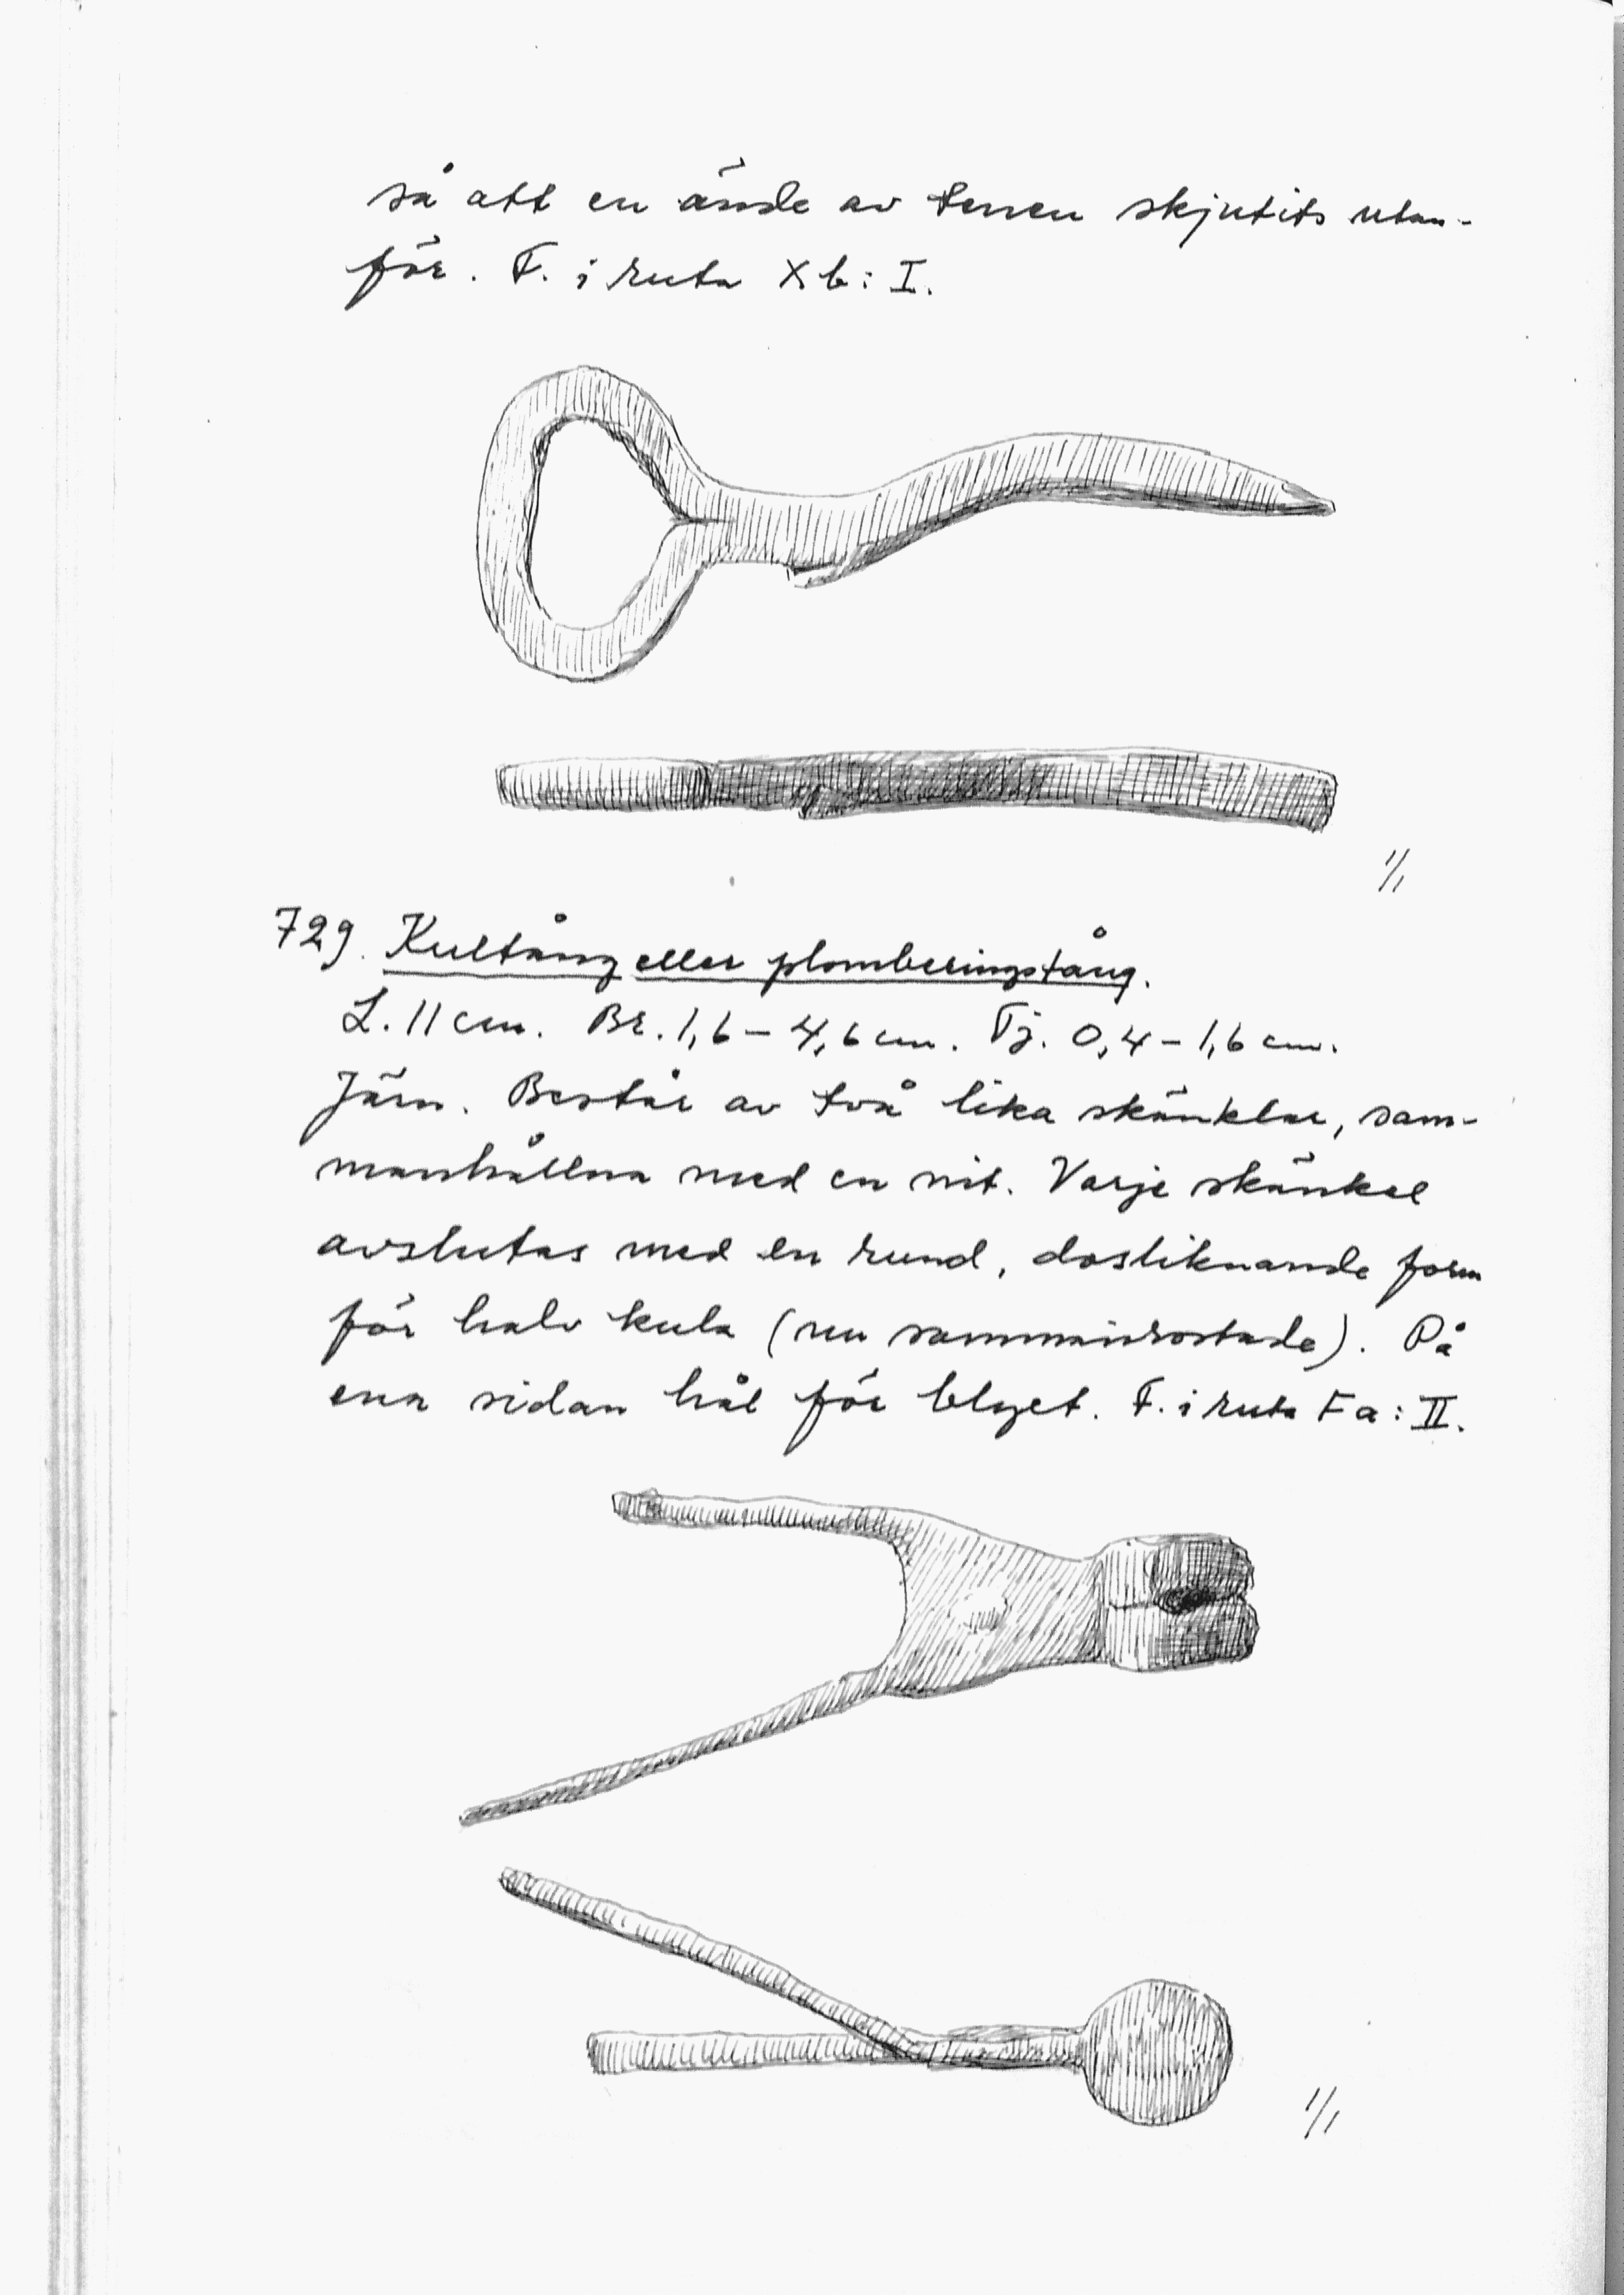 så att en ände av tenen skjutits utan-
för. F. i ruta Xb: I.
1/1
729. Kultång eller plomberingstång.
L. 11 cm. Br. 1,6 – 4,6 cm. Tj. 0,4 – 1,6 cm.
Järn. Består av två lika skänklar, sam-
manhållna med en nit. Varje skänkel
avslutas med en rund, dosliknande form
för halv kula (nu sammanrostade). På
ena sidan hål för blyet. F. i ruta Fa: II.
1/1